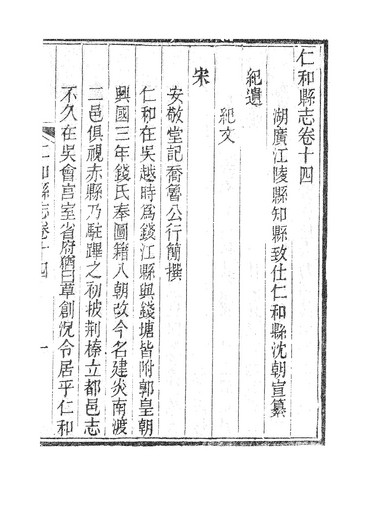 仁和縣志卷十四
湖廣江陵縣知縣致仕仁和縣沈朝宣纂
紀遺
紀文
宋
安敬堂記喬簪公行簡撰
仁和在吳越時爲錢江縣與錢塘皆附郭皇朝
興國三年錢氏奉圖籍入朝故今名建炎南渡
二邑俱視赤縣乃駐蹕之初披荆榛立都邑志
不久在吳會宫室省府猶草創況令居乎仁和
仁和縣志卷十四
一